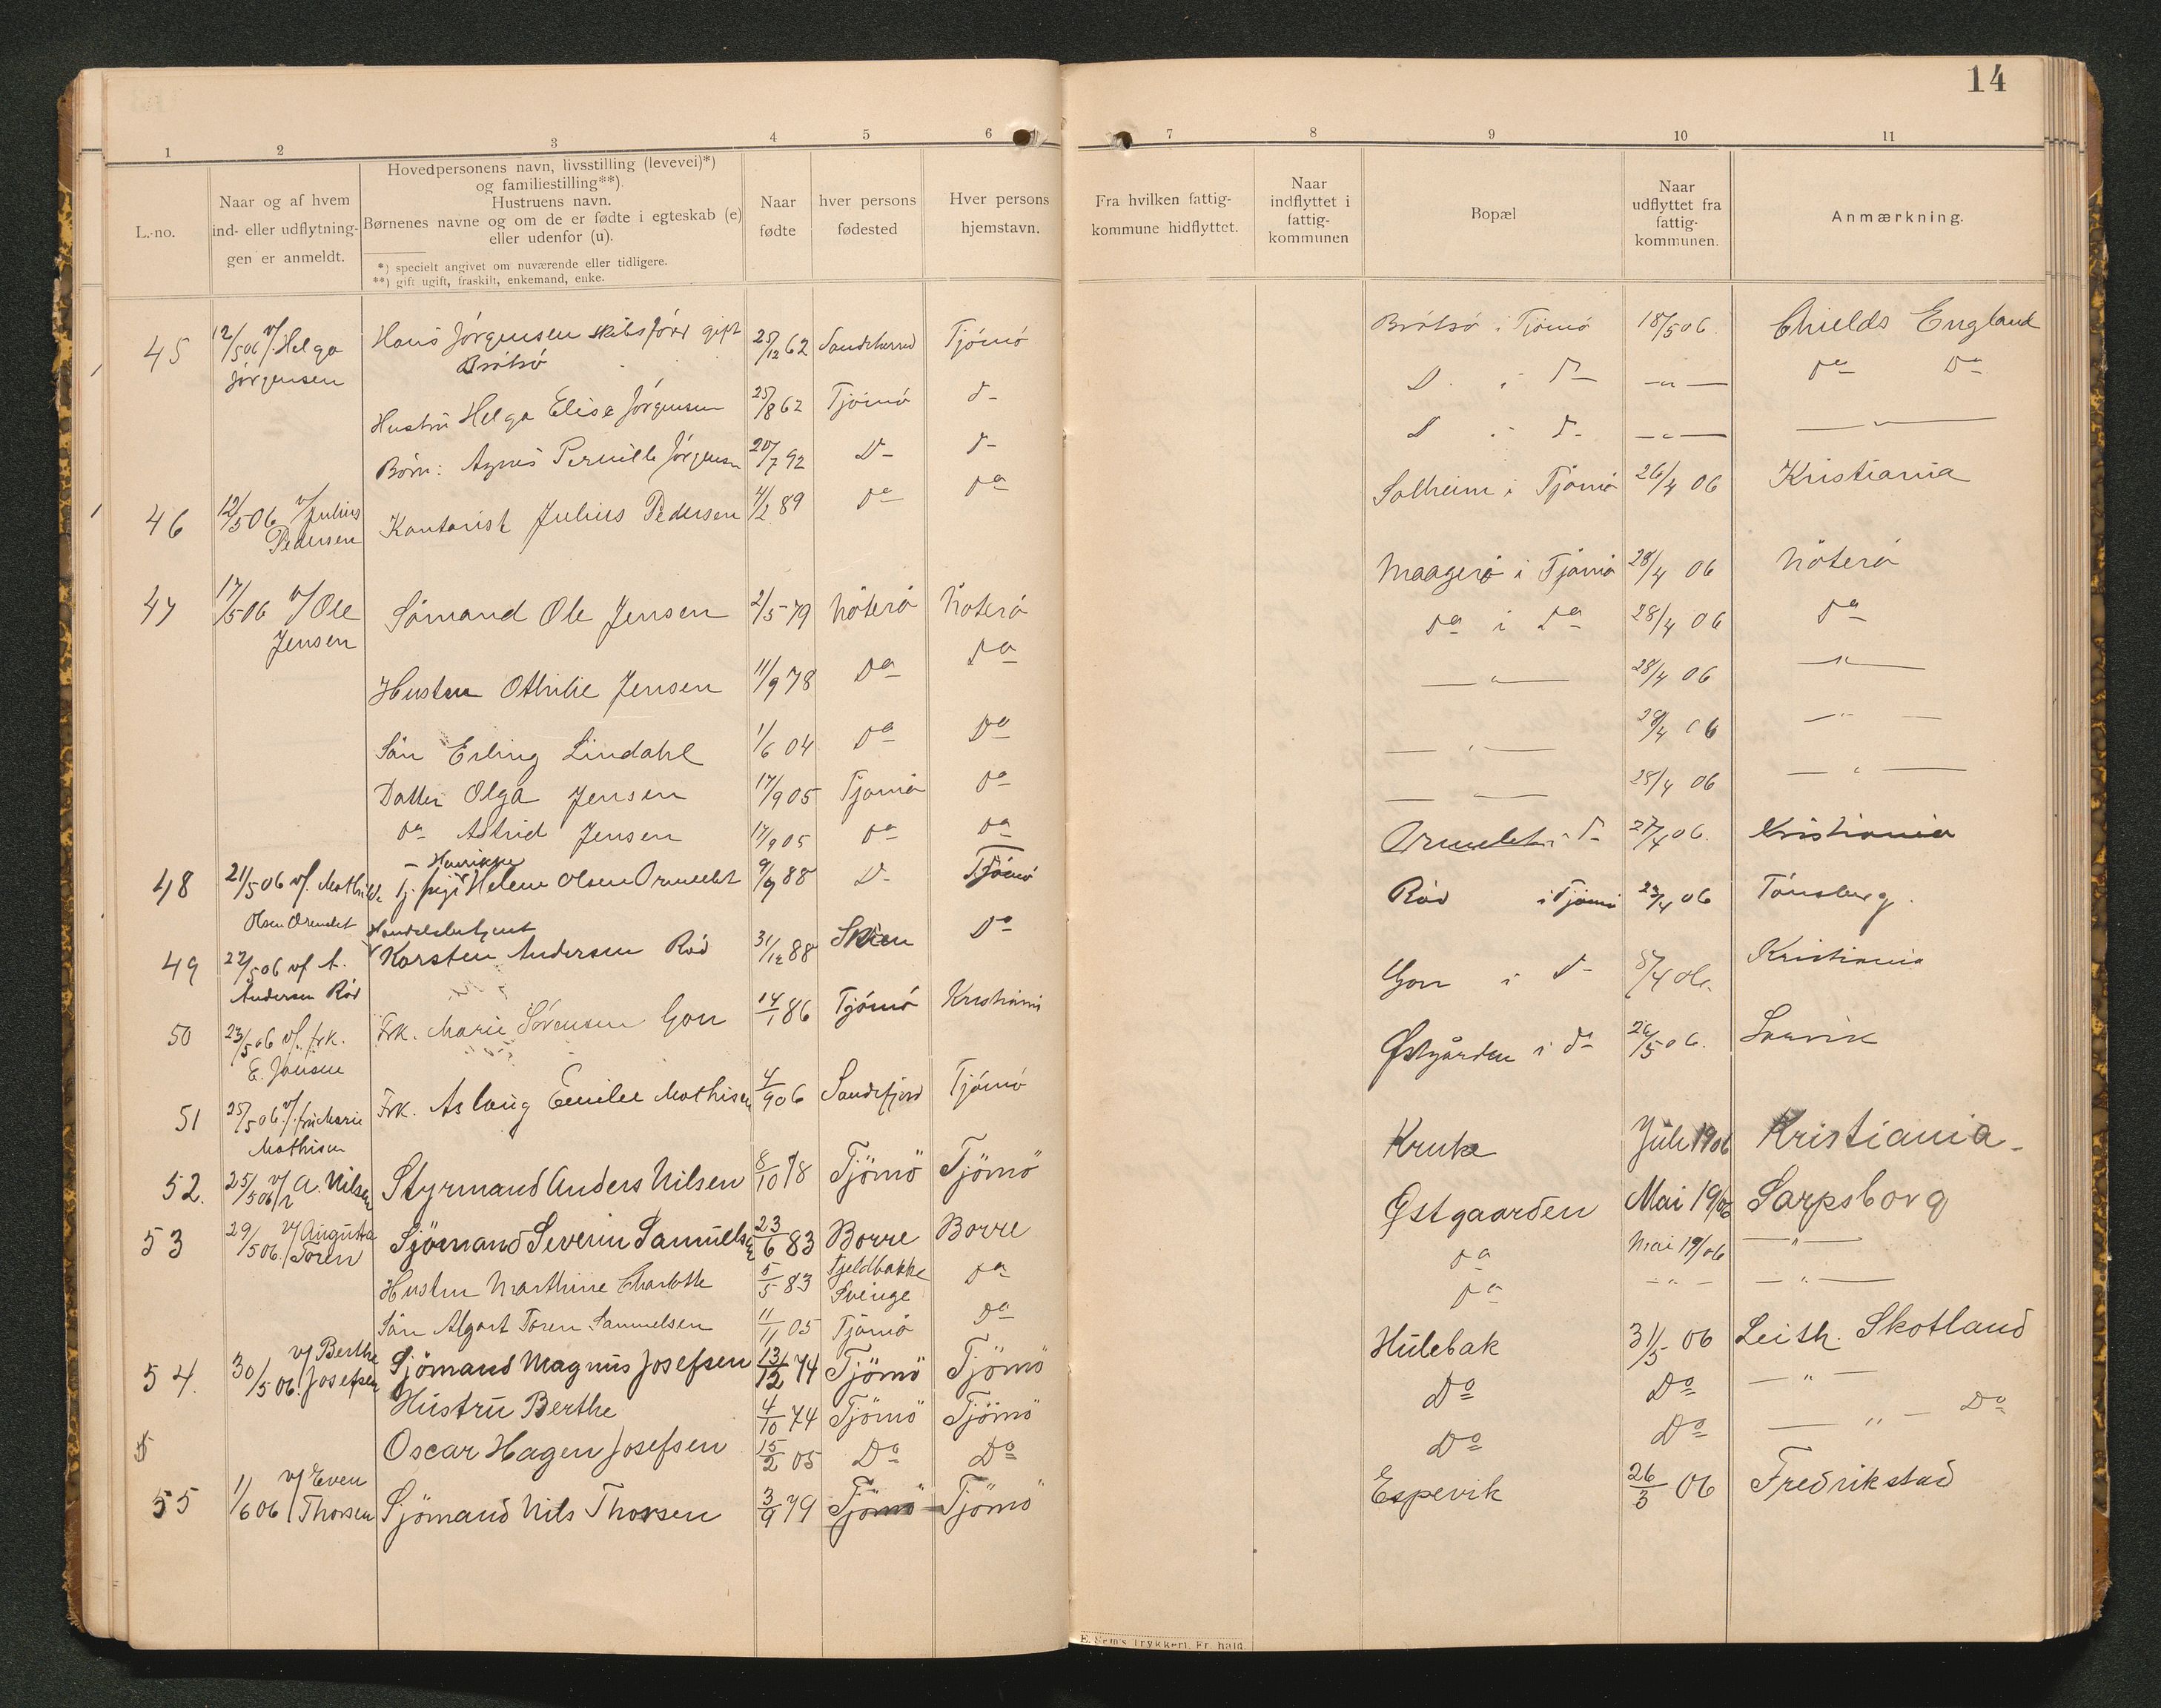 14
1 2 3 4 5 6 7 8 9 10 11
L.-no.
Naar og af hvem
ind- eller udflytnin-
gen er anmeldt.
Hovedpersonens navn, livsstilling (levevei)*)
og familiestilling**).
Hustruens navn.
Børnenes navne og om de er fødte i egteskab (e)
eller udenfor (u).
*) specielt angivet om nuværende eller tidligere.
**) gift ugift, fraskilt, enkemand, enke.
Naar
fødte
hver persons
fødested
Hver persons
hjemstavn.
Fra hvilken fattig-
kommune hidflyttet.
Naar
indflyttet i
fattig-
kommunen
Bopæl
Naar
udflyttet fra
fattig-
kommunen.
Anmærkning.
45 12/5 06 v/ Helga Hans Jörgensen skibsförer gift 25/12 62 Sandeherred Tjömö Brötsö i Tjömö 18/5 06. Chields England
Jörgensen Brötsö
Hustru Helga Elise Jörgensen 25/8 62 Tjömö d- D i d- -"- Do Do
Börn: Agnes Pernille Jörgensen 20/7 92 D- d- D i d- -"- -"-
46 12/5 06 v/ Julius Kontorist Julius Pedersen 4/2 89 Do Do Solheim i Tjömö 26/4 06 Kristiania
Pedersen
47 17/5 06 v/ Ole Sömand Ole Jensen 2/5 79 Nöterö Nöterö Maagerö i Tjömö 28/4 06 Nöterö
Jensen
Hustru Othilie Jensen 11/9 78 Do Do Do i Do 28/4 06 Do
Sön Erling Lindahl 1/6 04 Do Do -"- 28/4 06 -"-
Datter Olga Jensen 17/9 05 Tjömö Do -"- 28/4 06 -"-
Do Astrid Jensen 17/9 05 Do Do -"- 28/4 06 -"-
48 21/5 06 v/ Mathilde Tj. pige Helene Olsen Ormelet 9/9 88 D- Tjömö Ormelet i d- 27/4 06. Kristiania
Olsen Ormelet
Handelsbetjent
49 22/5 06 v/ A. Karsten Andersen Röd 31/12 88 Skien Do Röd i Tjömö 23/4 06 Tönsberg.
Andersen Röd
50 23/5 06 v/ frk. Frk. Marie Sörensen Gon 14/1 86 Tjömö Kristiania Gon i d- 8/4 06. Kristiania
E. Jansen
51 25/5 06 v/ fru Marie Frk. Aslaug Emilie Mathisen 4/9 06 Sandefjord Tjömö Østgården i do 26/5 06. Larvik
Mathisen
52. 25/5 06 v/ A. Nilsen Styrmand Anders Nilsen 8/10 78 Tjömö Tjömö Kruke Juli 1906 Kristiania-
53 29/5 06. v/ Augusta Sjömand Severin Samuelsen 23/6 83 Borre Borre Østgaarden Mai 19/06 Sarpsborg
Toren
Hustru Marthine Charlotte 5/5 83 Fjeldbakke Do Do Mai 19/06 -"-
Sverige
Sön Algart Toren Samuelsen 11/11 05 Tjömö Do Do -"- -"-
54. 30/5 06. v/ Berthe Sjömand Magnus Josefsen 13/12 74 Tjömö Tjömö Hulebak 31/5 06 Leith. Skotland
Josefsen
Hustru Berthe 4/10 74 Tjömö Tjömö Do Do -"-
5 Oscar Hagen Josefsen 15/2 05 Do Do Do Do -"- Do
55 1/6 06 v/ Even Sjömand Nils Thorsen 3/9 79 Tjömö Tjömö Espevik 26/3 06 Fredrikstad
Thorsen
E. Sem's Trykkeri, Fr.hald.